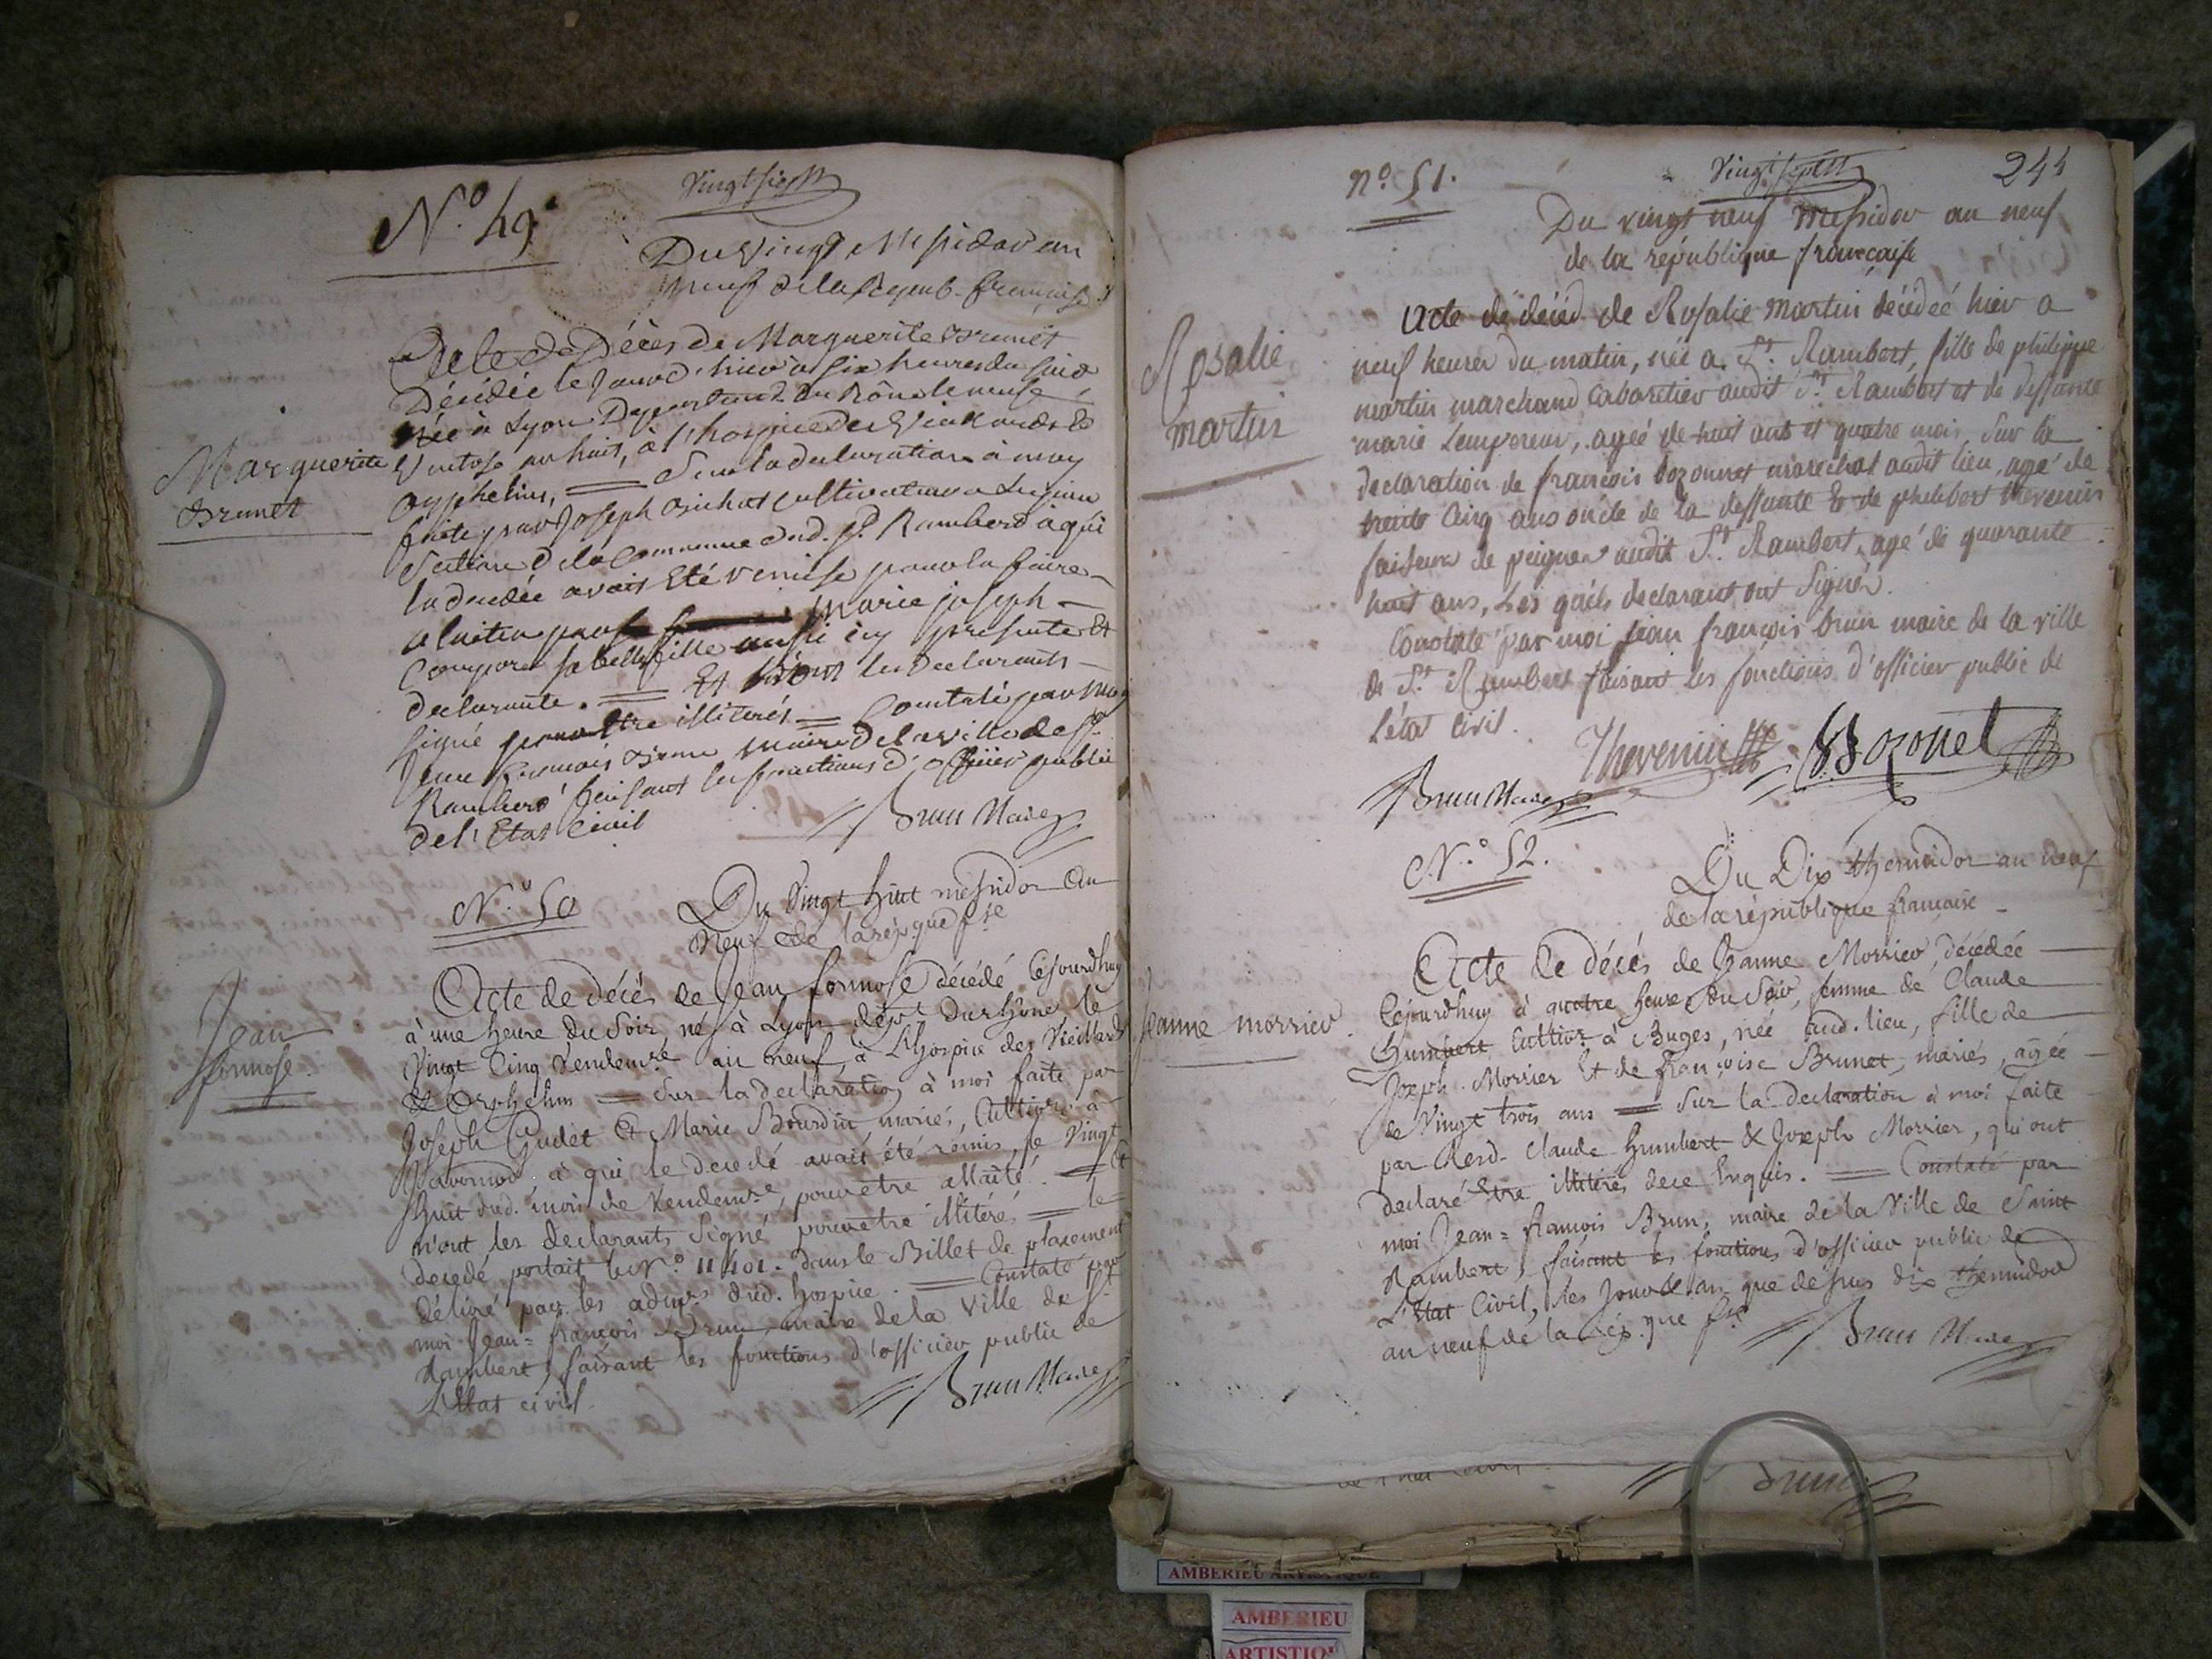 Vingt sept
N.o 49
Du Vingt Messidor an
neuf de la Repub. française
Acte de Décès de Marguerite Brunet
Décédée le Jour d'hier à six heures du soir
née à Lyon Departemt. du Rône le neuf
Ventose an huit, à l'hospice des Vieillards et
orphelins, = Sur la declaration à moy
faite par Joseph cultivateur a
Section de la Commune dud. St. Rambert à qui
la décédée avait Eté remise pour la faire
alaiter par Marie joseph
sa belle fille aussi icy presente et
declarante. = Et les declarants
signé pour être illiterés = Constaté par moy
Jean François Brun maire de la ville de St.
Rambert faisant les fonctions d'officier public
de l'Etat Civil
Brun Maire
Marguerite
Brunet
N.o 50
Du Vingt huit messidor an
neuf de la rép.que f.se
Acte de décès de Jean formose décédé Cejourdhuy
à une heure du Soir, né à Lyon dépt. du rhône le
Vingt Cinq Vendemre. an neuf, à L'hospice des Vieillards
& Orphelins = Sur la declaration à moi faite par
Joseph Gudet & Marie Bourdin, mariés, Cultivrs. à
Javornod à qui le decedé avait été remis, le Vingt
huit dud. mois de Vendemre, pour être allaité. = Et
n'ont les declarants Signé pour être illitérés = le
decedé portait le N.o 11401. dans le Billet de placement
délivré par les admrs. dud. hospice. = Constaté par
moi Jean=françois Brun, maire de la Ville de St.
Rambert, faisant les fonctions d'officier public de
L'Etat civil.
Brun Maire
Jean
formose.
n.o 51.
Vingt sept
244
Du vingt neuf Messidor an neuf
de la république française
Acte de décéd de Rosalie martin décédeé hier a
neuf heures du matin, née a St. Rambert, fille de philippe
martin marchand Cabaretier audit St. Rambert et de deffunte
marie Lempereur, ageé de huit ans et quatre mois, Sur la
declaration de françois bozonnet marechal audit lieu, agé de
trente Cinq ans oncle de la deffunte & de philibert thevenin
faiseur de peignes audit St. Rambert, agé de quarante
huit ans, Les quels declarant ont Signés.
Constaté par moi jean françois brun maire de la ville
de St. Rambert faisant les fonctions d'officier public de
l'état Civil.
Thevenin
Bozonet
Brun Maire
Rosalie
martin
N.o 52.
Du Dix thermidor an neuf
de la république francaise
Acte de décès de Jeanne Morrier, décédée
Cejourdhuy à quatre heures du Soir, femme de Claude
humbert Cultivr. à Buges, née aud. lieu, fille de
Joseph Morrier Et de françoise Brunet, mariés, agée
de Vingt trois ans = Sur la declaration à moi faite
par Claude humbert & Joseph Morrier, qui ont
declaré être illiterés de ce Enquis. = Constaté par
moi Jean=francois Brun, maire de la Ville de Saint
Rambert, faisant les fonctions d'officier public de
L'Etat Civil, les Jour & an que dessus dix thermidor
an neuf de la rép.que f.se
Brun Maire
Jeanne morrier.
Brun
AMBERIEU ARTISTIQUE
AMBERIEU
ARTISTIQU